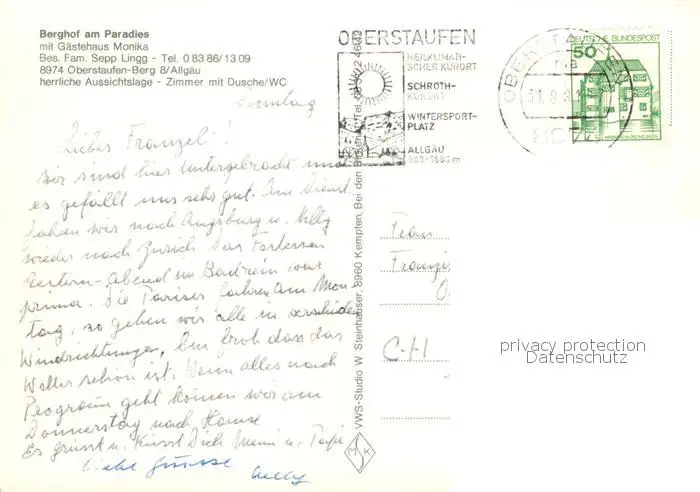 Berghof am Paradies
mit Gästehaus Monika
Bes. Fam. Sepp Lingg - Tel. 0 83 86/13 09
8974 Oberstaufen-Berg 8/Allgäu
herrliche Aussichtslage - Zimmer mit Dusche/WC
Sonntag
Liebes Franzeli!
Wir sind hier untergebracht und
es gefällt uns sehr gut. Am Dienst.
fahren wir nach Augsburg u. Nelly
wieder nach Zürich. Das Festessen
gestern-Abend im war
prima. Die Pariser fahren am Mon-
tag, so gehen wir alle in verschiedene
Windrichtungen, bin froh dass das
Wetter schön ist. Wenn alles nach
Programm geht kommen wir am
Donnerstag nach Hause
Es grüsst u. küsst Dich Mami u.
Liebe Grüsse
Nelly
OBERSTAUFEN
HEILKLIMATI-
SCHER KURORT
SCHROTH-
KURORT
WINTERSPORT-
PLATZ
ALLGÄU
DEUTSCHE BUNDESPOST
50
VWS-Studio W. Steinhauser, 8960 Kempten, Bei den
MSK
Frau
CH
privacy protection
Datenschutz